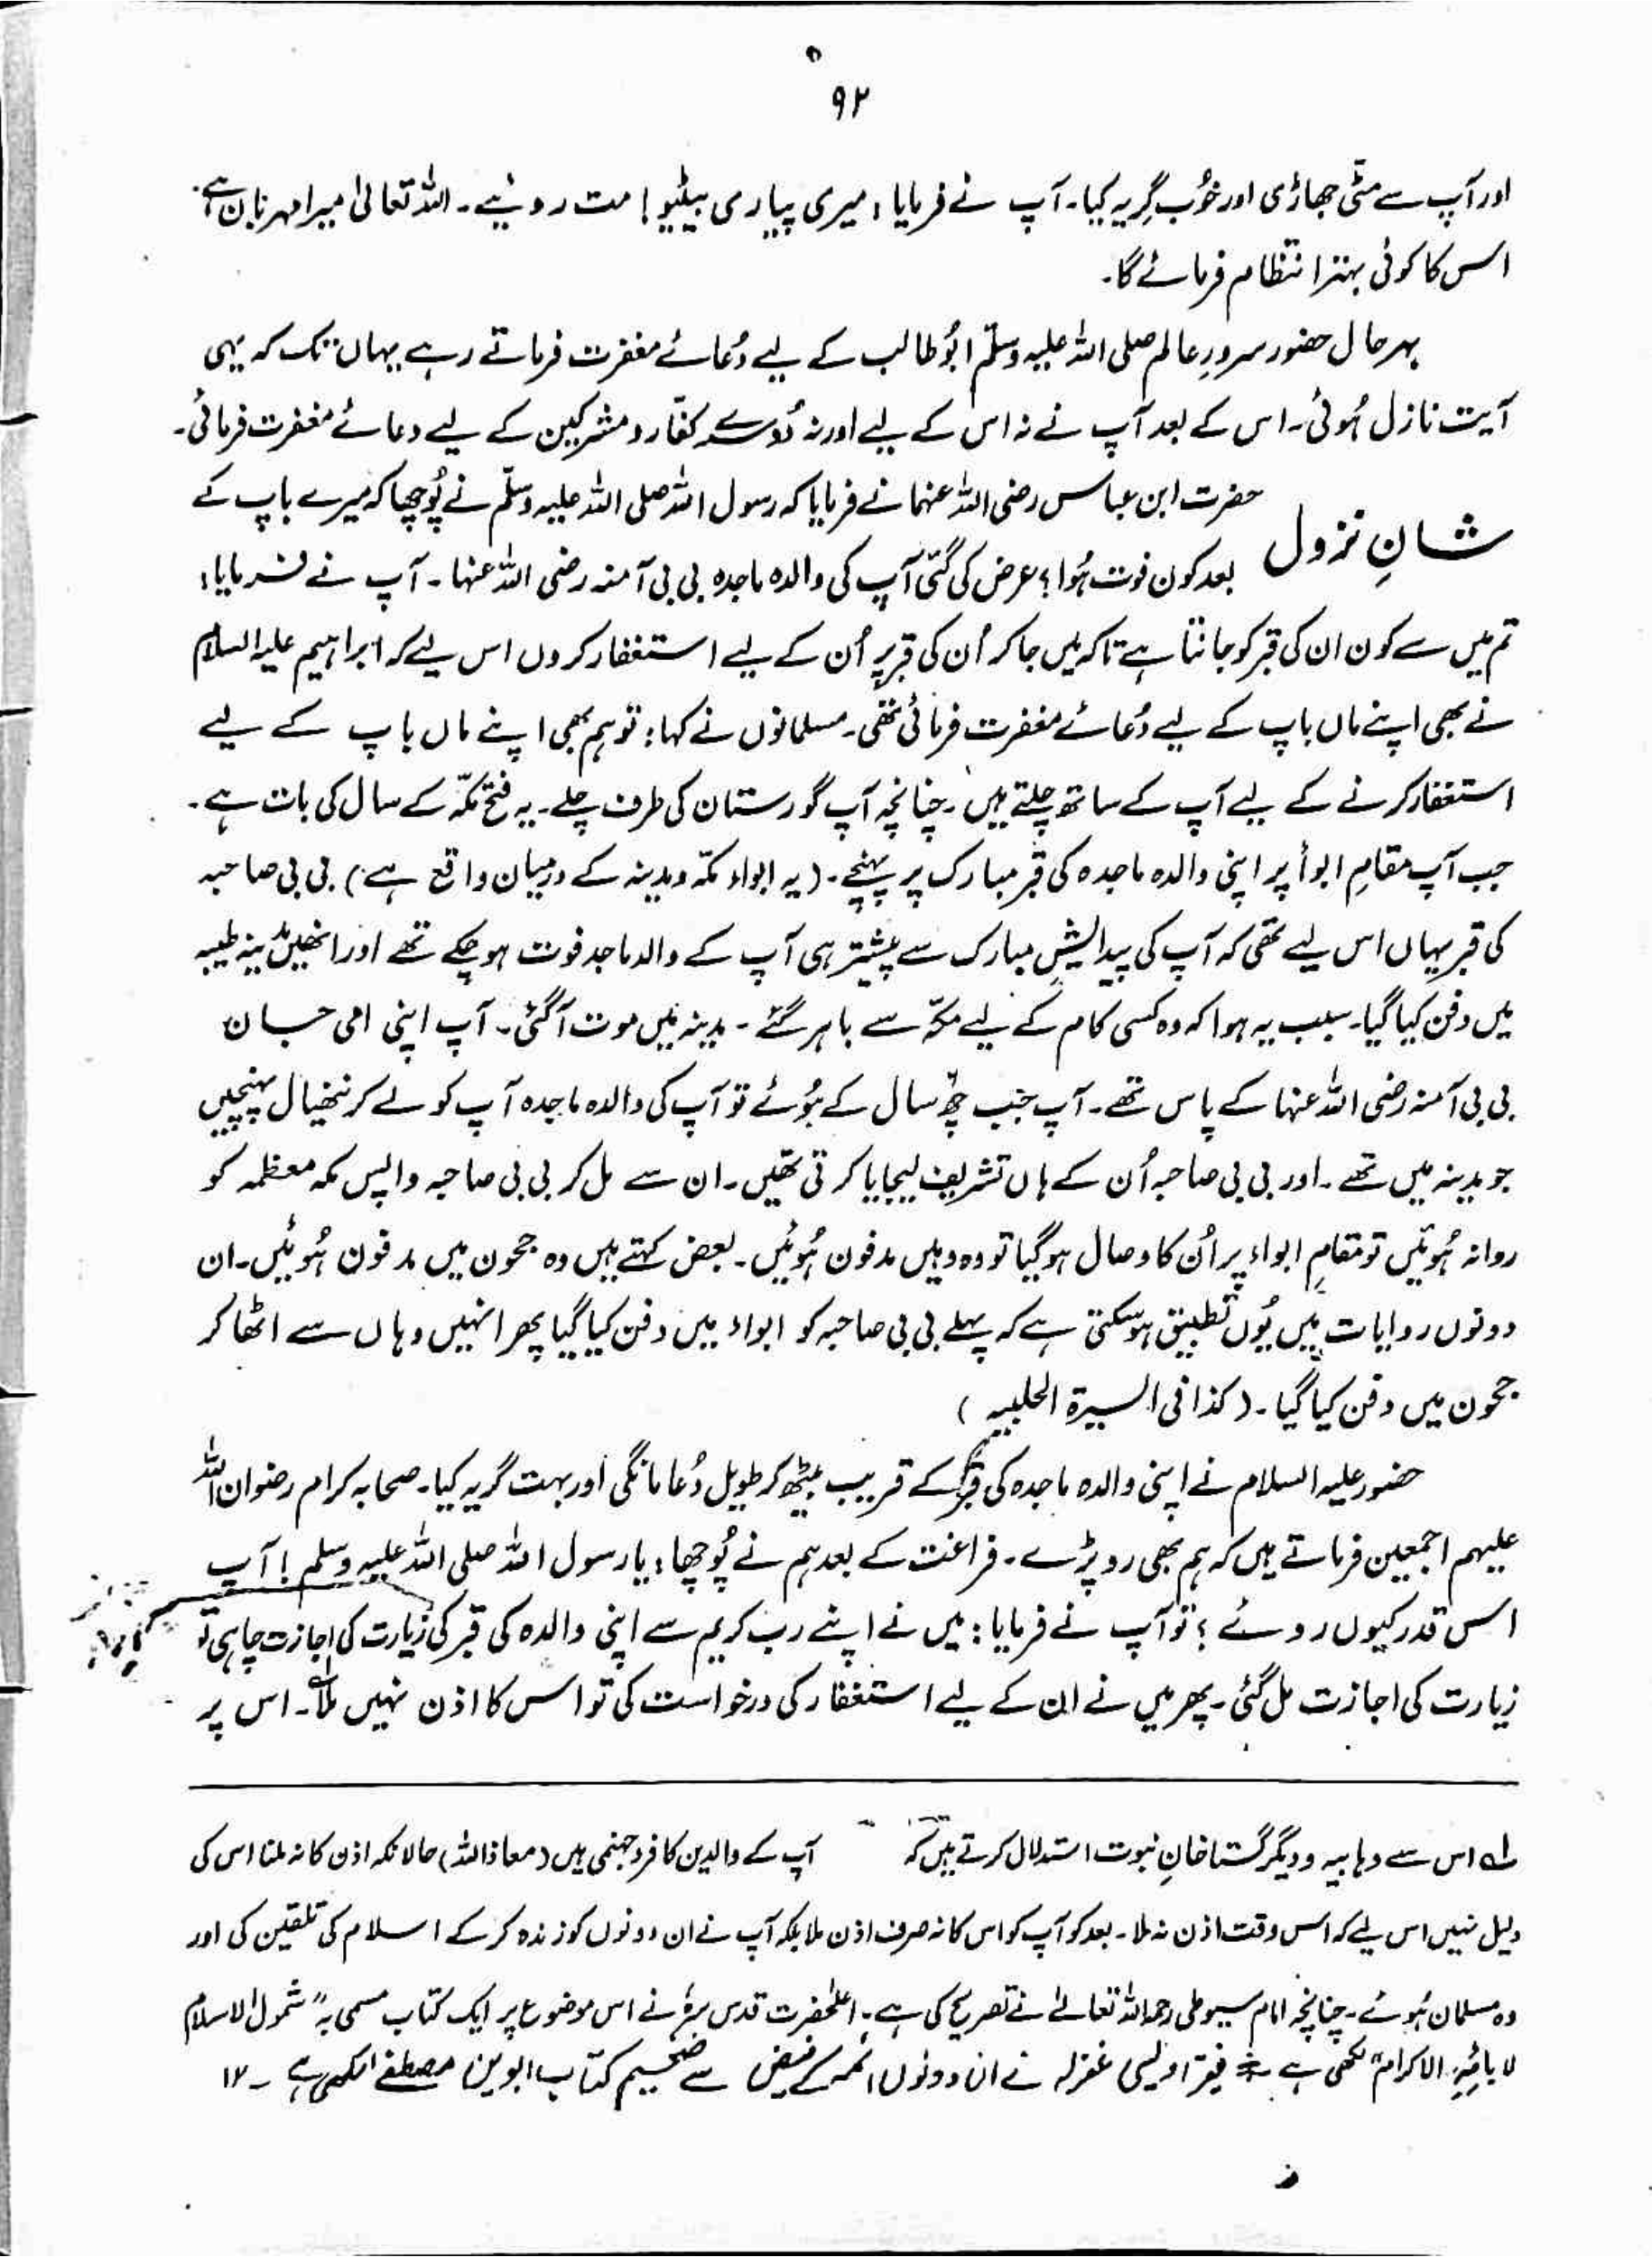 ۹۲
اور آپ سے مٹی جھاڑی اور خُوب گِریہ کیا۔ آپ نے فرمایا: میری پیاری بیٹیو! مت روئیے۔ اللہ تعالیٰ میرا مہربان ہے
اس کا کوئی بہتر انتظام فرمائے گا۔
بہرحال حضور سرورِ عالم صلی اللہ علیہ وسلّم ابُوطالب کے لیے دُعائے مغفرت فرماتے رہے یہاں تک کہ یہی
آیت نازل ہُوئی۔ اس کے بعد آپ نے نہ اس کے لیے اور نہ دُوسرے کفّار و مشرکین کے لیے دعائے مغفرت فرمائی۔
شانِ نزول حضرت ابن عباس رضی اللہ عنہما نے فرمایا کہ رسول اللہ صلی اللہ علیہ وسلّم نے پُوچھا کہ میرے باپ کے
بعد کون فوت ہُوا؟ عرض کی گئی آپ کی والدہ ماجدہ بی بی آمنہ رضی اللہ عنہا۔ آپ نے فرمایا:
تم میں سے کون ان کی قبر کو جانتا ہے تاکہ میں جا کر اُن کی قبر پر اُن کے لیے استغفار کروں اس لیے کہ ابراہیم علیہ السلام
نے بھی اپنے ماں باپ کے لیے دُعائے مغفرت فرمائی تھی۔ مسلمانوں نے کہا: تو ہم بھی اپنے ماں باپ کے لیے
استغفار کرنے کے لیے آپ کے ساتھ چلتے ہیں۔ چنانچہ آپ گورستان کی طرف چلے۔ یہ فتح مکّہ کے سال کی بات ہے۔
جب آپ مقامِ ابوأ پر اپنی والدہ ماجدہ کی قبر مبارک پر پہنچے۔ (یہ ابواء مکّہ و مدینہ کے درمیان واقع ہے) بی بی صاحبہ
کی قبر یہاں اس لیے تھی کہ آپ کی پیدائیشِ مبارک سے پیشتر ہی آپ کے والد ماجد فوت ہو چکے تھے اور انھیں مدینہ طیبہ
میں دفن کیا گیا۔ سبب یہ ہوا کہ وہ کسی کام کے لیے مکّہ سے باہر گئے۔ مدینہ میں موت آگئی۔ آپ اپنی امی جان
بی بی آمنہ رضی اللہ عنہا کے پاس تھے۔ آپ جب چھ سال کے ہُوئے تو آپ کی والدہ ماجدہ آپ کو لے کر ننھیال پہنچیں
جو مدینہ میں تھے۔ اور بی بی صاحبہ اُن کے ہاں تشریف لیجایا کرتی تھیں۔ ان سے مل کر بی بی صاحبہ واپس مکہ معظمہ کو
روانہ ہُوئیں تو مقامِ ابواء پر اُن کا وصال ہو گیا تو وہ وہیں مدفون ہُوئیں۔ بعض کہتے ہیں وہ جحون میں مدفون ہُوئیں۔ ان
دونوں روایات میں یُوں تطبیق ہو سکتی ہے کہ پہلے بی بی صاحبہ کو ابواء میں دفن کیا گیا پھر انہیں وہاں سے اٹھا کر
جحون میں دفن کیا گیا۔ (کذا فی السیرۃ الحلبیہ)
حضور علیہ السلام نے اپنی والدہ ماجدہ کی قبر کے قریب بیٹھ کر طویل دُعا مانگی اور بہت گریہ کیا۔ صحابہ کرام رضوان اللہ
علیہم اجمعین فرماتے ہیں کہ ہم بھی رو پڑے۔ فراغت کے بعد ہم نے پُوچھا: یا رسول اللہ صلی اللہ علیہ وسلم! آپ
اس قدر کیوں روئے؟ تو آپ نے فرمایا: میں نے اپنے رب کریم سے اپنی والدہ کی قبر کی زیارت کی اجازت چاہی تو
زیارت کی اجازت مل گئی۔ پھر میں نے ان کے لیے استغفار کی درخواست کی تو اس کا اذن نہیں ملا۔ اس پر
لہ اس سے وہابیہ و دیگر گستاخانِ نبوت استدلال کرتے ہیں کہ آپ کے والدین کافر و جہنمی ہیں (معاذ اللہ) حالانکہ اذن کا نہ ملنا اس کی
دلیل نہیں اس لیے کہ اس وقت اذن نہ ملا۔ بعد کو آپ کو اس کا نہ صرف اذن ملا بلکہ آپ نے ان دونوں کو زندہ کر کے اسلام کی تلقین کی اور
وہ مسلمان ہُوئے۔ چنانچہ امام سیوطی رحمہ اللہ تعالےٰ نے تصریح کی ہے۔ اعلحٰضرت قدس سرہٗ نے اس موضوع پر ایک کتاب مسمی بہ "شمول الاسلام
لابائہِ الاکرام" لکھی ہے۔ فقیر اویسی غفرلہ نے ان دونوں ائمہ کے فیض سے ضخیم کتاب ابوین مصطفےٰ لکھی ہے ۔ ۱۲